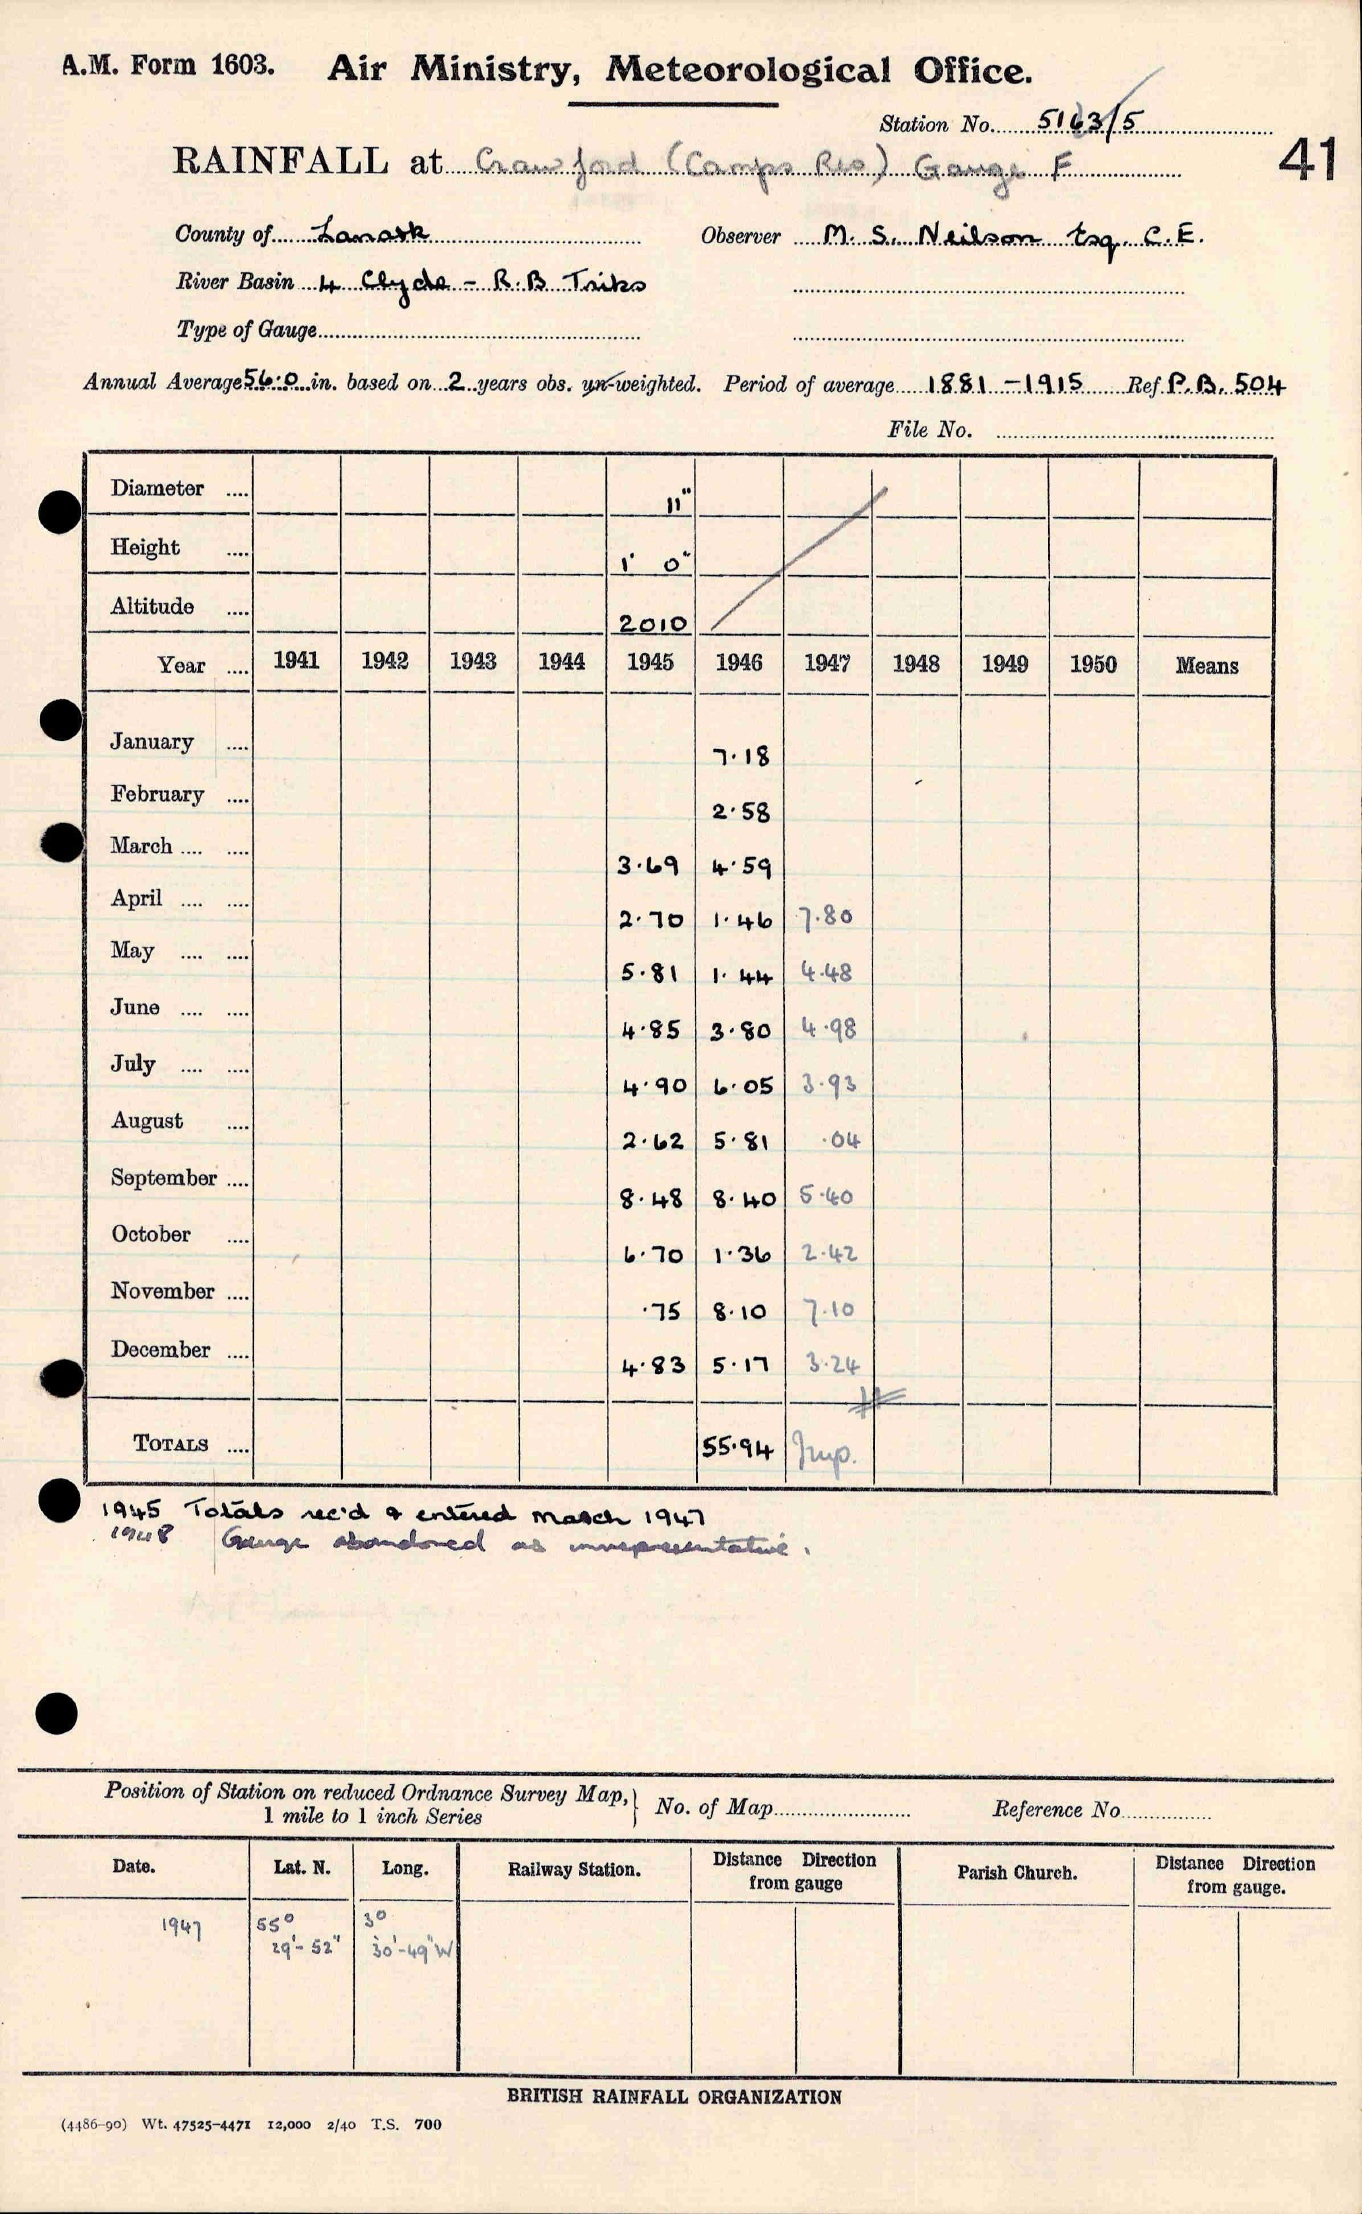 A.M. Form 1603. Air Ministry, Meteorological Office.
Station No. 5163/5
RAINFALL at Crawford (Camps Res) Gauge F 41
County of Lanark Observer M. S. Neilson Esq. C.E.
River Basin 4 Clyde - R.B Tribs
Type of Gauge
Annual Average 56.0 in. based on 2 years obs. un-weighted. Period of average 1881 - 1915 Ref. P.B. 504
File No.
Diameter .... 11"
Height .... 1' 0"
Altitude .... 2010
Year .... 1941 1942 1943 1944 1945 1946 1947 1948 1949 1950 Means
January .... 7.18
February .... 2.58
March .... .... 3.69 4.59
April .... .... 2.70 1.46 7.80
May .... .... 5.81 1.44 4.48
June .... .... 4.85 3.80 4.98
July .... .... 4.90 6.05 3.93
August .... 2.62 5.81 .04
September .... 8.48 8.40 5.40
October .... 6.70 1.36 2.42
November .... .75 8.10 7.10
December .... 4.83 5.17 3.24
TOTALS .... 55.94 Imp.
1945 Totals rec'd & entered March 1947
1948 Gauge abandoned as unrepresentative.
Position of Station on reduced Ordnance Survey Map, 1 mile to 1 inch Series } No. of Map Reference No.
Date. Lat. N. Long. Railway Station. Distance Direction from gauge Parish Church. Distance Direction from gauge.
1947 55° 3°
29'- 52" 30'-49"W
BRITISH RAINFALL ORGANIZATION
(4486-90) Wt. 47525-4471 12,000 2/40 T.S. 700